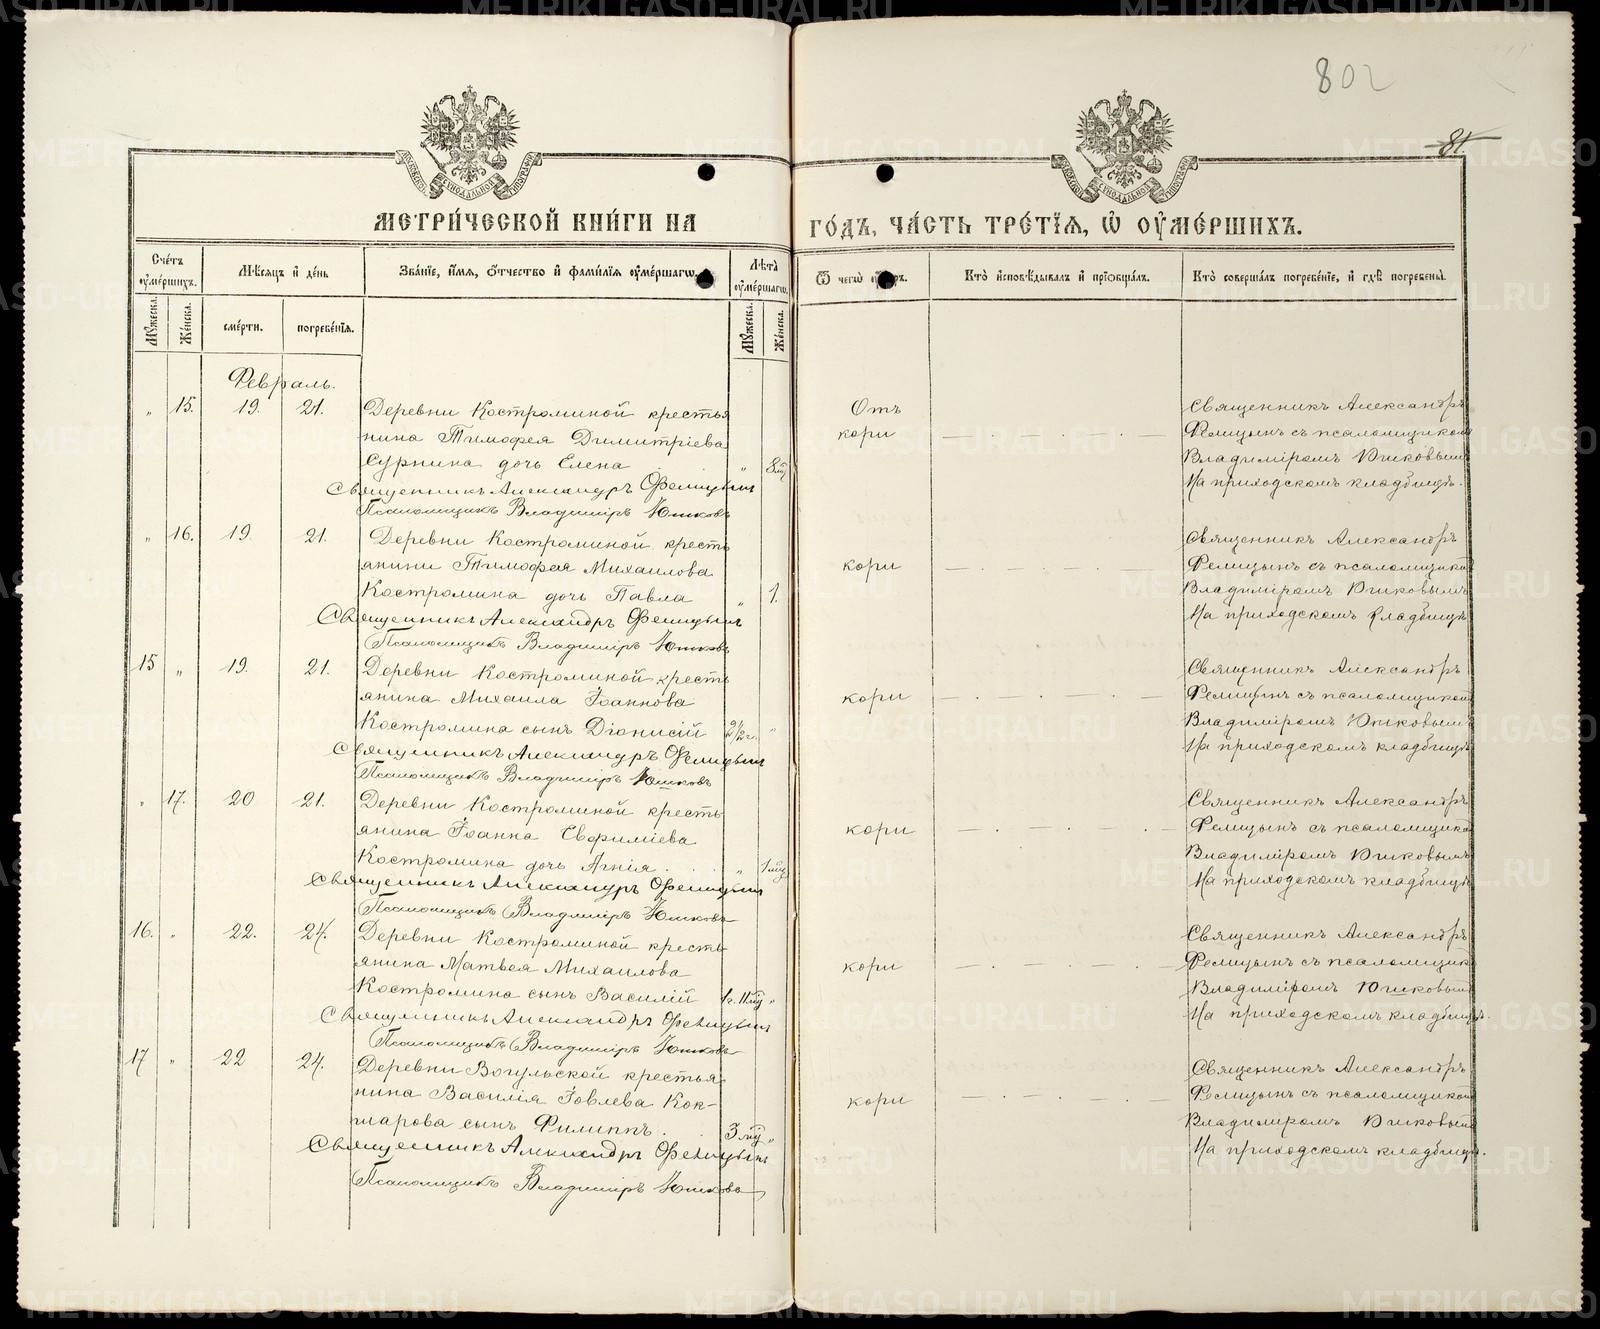 802
81.
МЕТРИ́ЧЕСКОЙ КНИ́ГИ НА ГО́ДЪ, ЧА́СТЬ ТРЕ́ТІЯ, Ѡ҆ ОУ҆МЕ́РШИХЪ.
Сче́тъ оу҆ме́ршихъ.
Мѣ́сяцъ и҆ де́нь
Зва́ніе, и҆́мя, ѻ҆́тчество и҆ фами́лія оу҆ме́ршагѡ.
Лѣ́та оу҆ме́ршагѡ.
Ѿ чегѡ̀
Кто̀ и҆сповѣ́дывалъ и҆ прїѡбща́лъ.
Кто̀ соверша́лъ погребе́ніе, и҆ гдѣ̀ погребены̀.
Мꙋ́жеска.
Же́нска.
сме́рти.
погребе́нїя.
Мꙋ́жеска.
Же́нска.
Февраль.
„ 15. 19. 21. Деревни Костроминой крестья
нина Тимофея Димитріева
Сурнина дочь Елена „ 8 мц
Священникъ Александръ Фелицынъ
Псаломщикъ Владиміръ Юшковъ
Отъ
кори
Священникъ Александръ
Фелицынъ съ псаломщикомъ
Владиміромъ Юшковымъ
На приходскомъ кладбищѣ.
„ 16. 19. 21. Деревни Костроминой кресть
янина Тимофея Михаилова
Костромина дочь Павла „ 1.
Священникъ Александръ Фелицынъ
Псаломщикъ Владиміръ Юшковъ
кори
Священникъ Александръ
Фелицынъ съ псаломщикомъ
Владиміромъ Юшковымъ
На приходскомъ кладбищѣ
15 „ 19. 21. Деревни Костроминой кресть
янина Михаила Іоаннова
Костромина сынъ Діонисій 2 1/2 г. „
Священникъ Александръ Фелицынъ
Псаломщикъ Владиміръ Юшковъ
кори
Священникъ Александръ
Фелицынъ съ псаломщикомъ
Владиміромъ Юшковымъ
На приходскомъ кладбищѣ
„ 17. 20 21. Деревни Костроминой кресть
янина Іоанна Евфиміева
Костромина дочь Агнія. „ 1 мц
Священникъ Александръ Фелицынъ
Псаломщикъ Владиміръ Юшковъ
кори
Священникъ Александръ
Фелицынъ съ псаломщико
Владиміромъ Юшковымъ
На приходскомъ кладбищѣ
16. „ 22. 24. Деревни Костроминой кресть
янина Матвея Михаилова
Костромина сынъ Василій 1г. 11 мц „
Священникъ Александръ Фелицынъ
Псаломщикъ Владиміръ Юшковъ
кори
Священникъ Александръ
Фелицынъ съ псаломщик
Владиміромъ Юшковымъ
На приходскомъ кладбищѣ.
17 „ 22 24. Деревни Вогульской крестья
нина Василія Іовлева Кок-
шарова сынъ Филиппъ. 3 мц „
Священникъ Александръ Фелицынъ
Псаломщикъ Владиміръ Юшковъ
кори
Священникъ Александръ
Фелицынъ съ псаломщикомъ
Владиміромъ Юшковымъ
На приходскомъ кладбищѣ.
METRIKI.GASO-URAL.RU